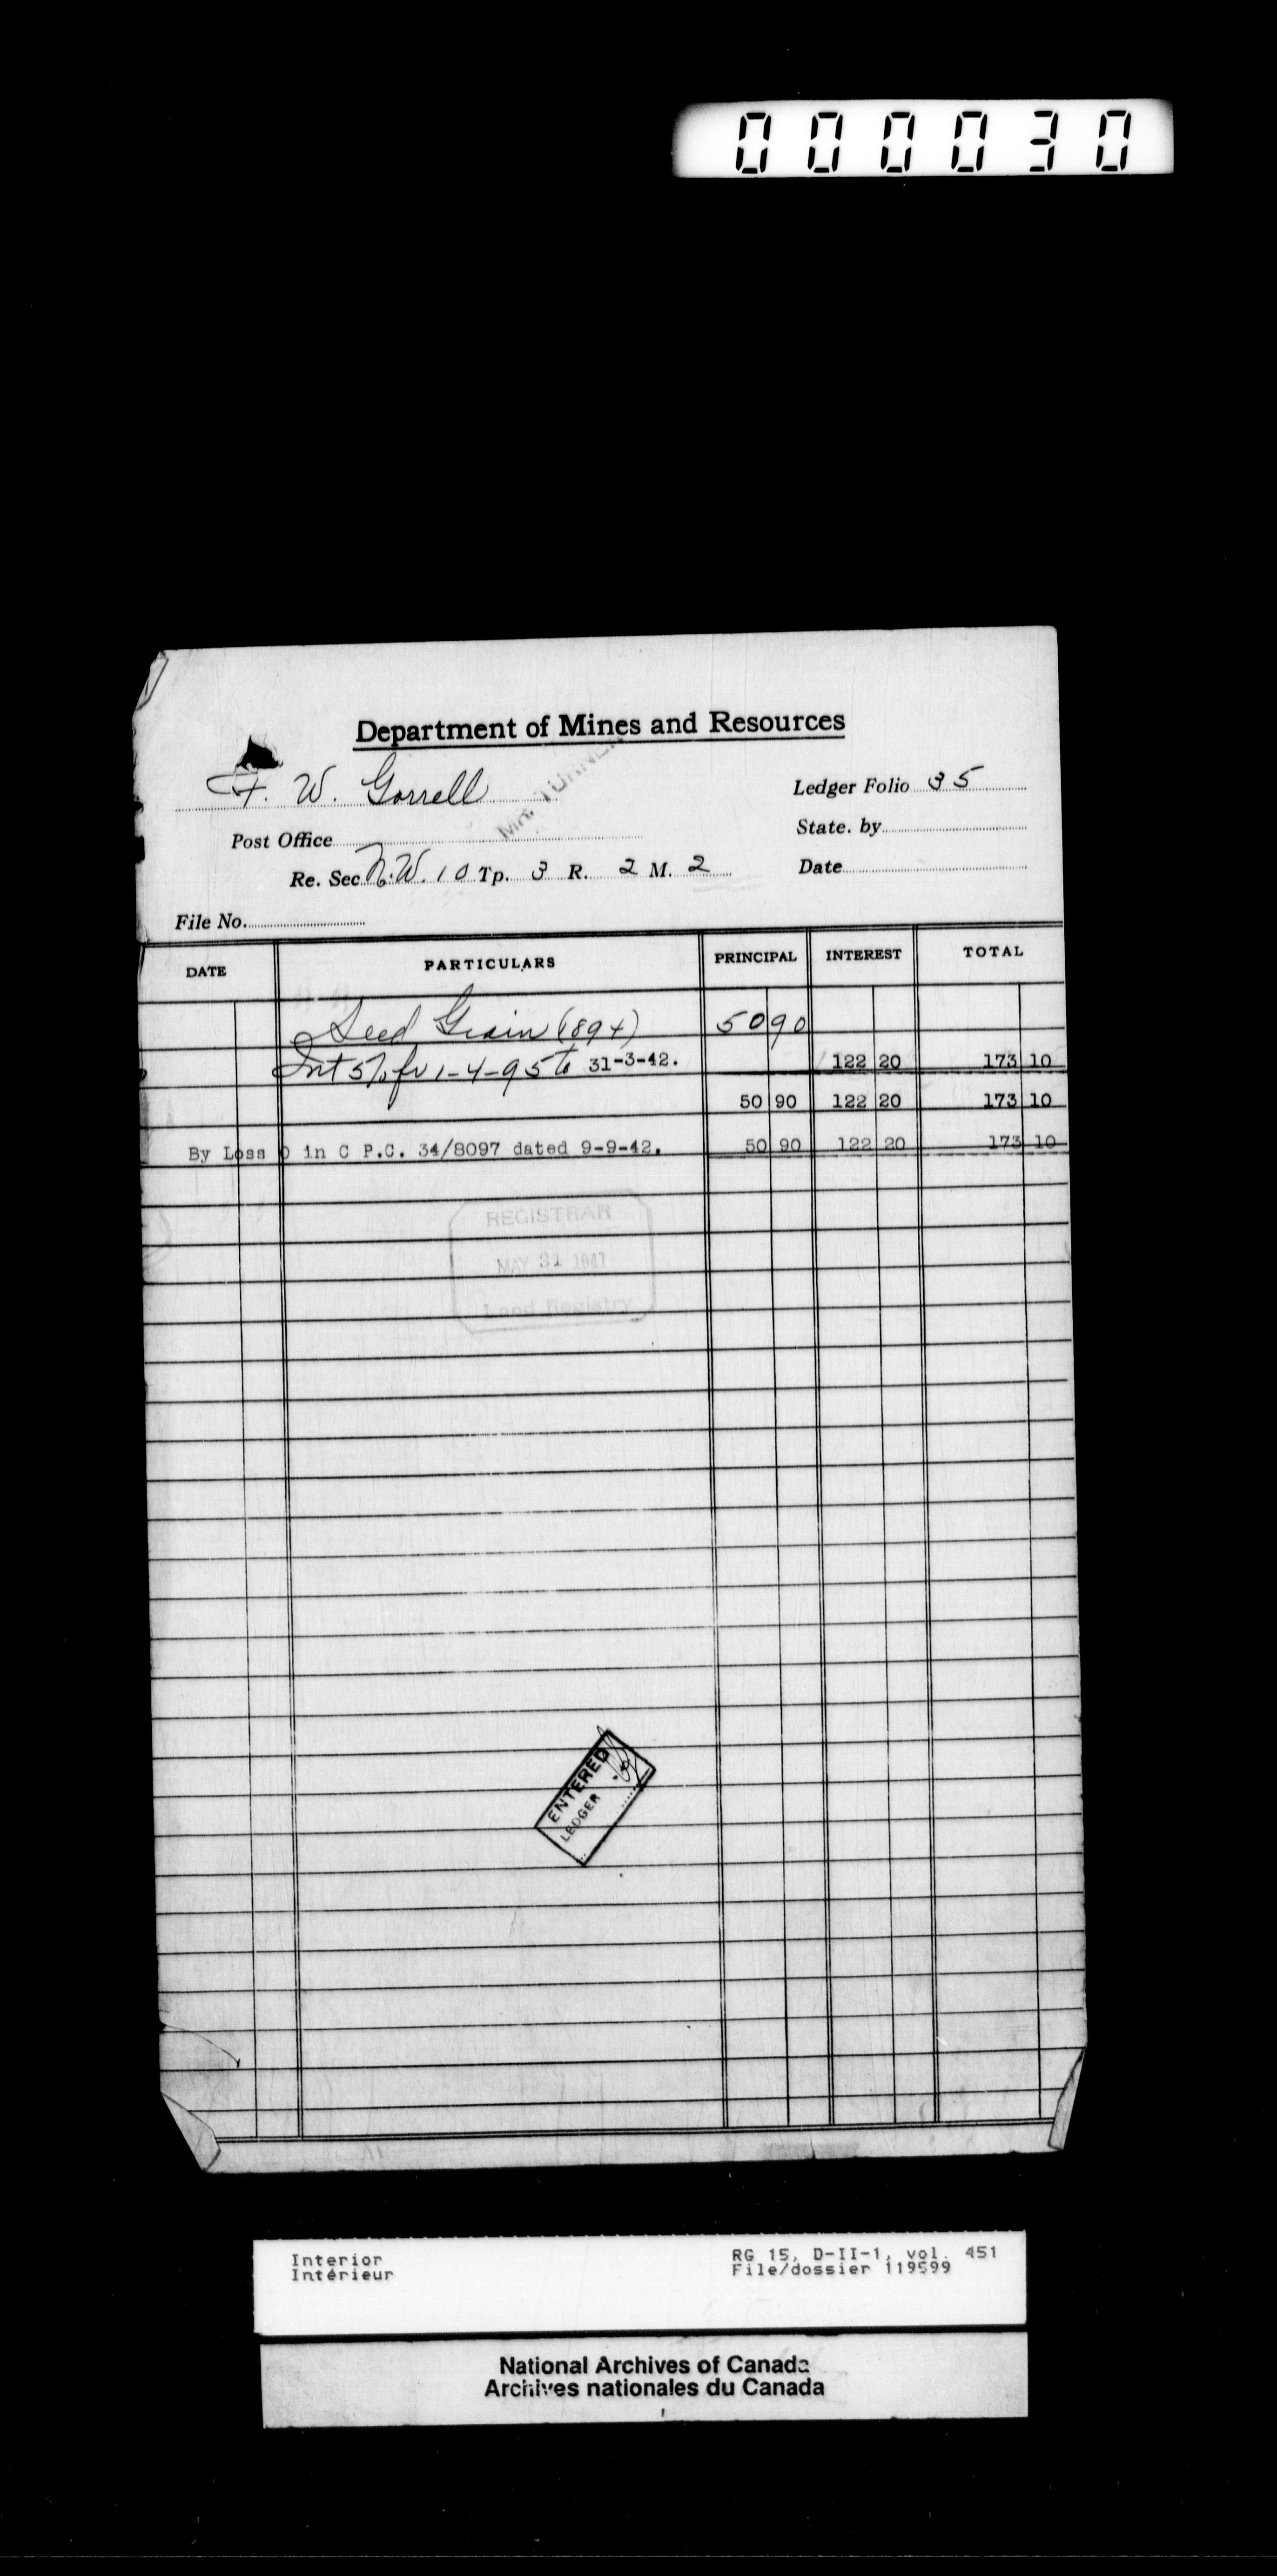 000030
Department of Mines and Resources
F. W. Gorrell
Mr. TURNER
Ledger Folio 35
Post Office
State. by
Re. Sec. N.W. 10 Tp. 3 R. 2 M. 2
Date
File No.
DATE PARTICULARS PRINCIPAL INTEREST TOTAL
Seed Grain (1894) 50 90
Int 5% fr 1-4-95 to 31-3-42. 122 20 173 10
50 90 122 20 173 10
By Loss O in C P.C. 34/8097 dated 9-9-42. 50 90 122 20 173 10
REGISTRAR
MAY 31 1947
Land Registry
ENTERED
LEDGER
Interior
Intérieur
RG 15, D-II-1, vol. 451
File/dossier 119599
National Archives of Canada
Archives nationales du Canada